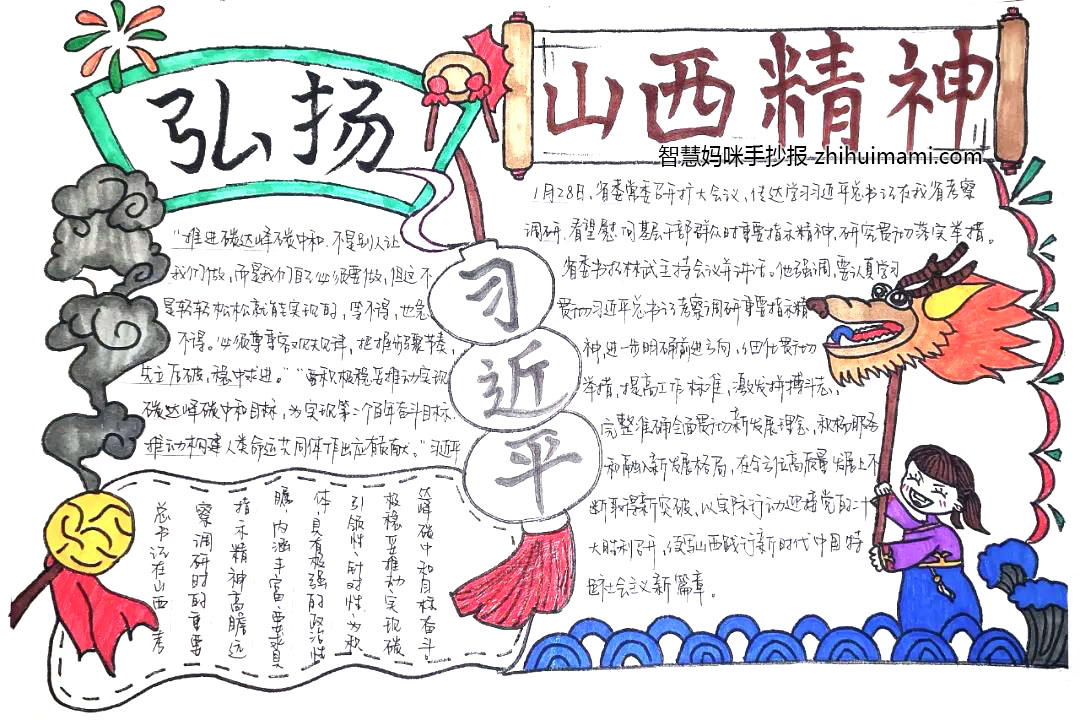 弘扬
山西精神
智慧妈咪手抄报 zhihuimami.com
习近平
"推进碳达峰碳中和,不是别人让
我们做,而是我们自己必须要做,但这不
是轻轻松松就能实现的,等不得,也急
不得。必须尊重客观规律,把握步骤节奏,
先立后破,稳中求进。""要积极稳妥推动实现
碳达峰碳中和目标,为实现第二个百年奋斗目标,
推动构建人类命运共同体作出应有贡献。"习近平
总书记在山西考
察调研时的重要
指示精神高瞻远
瞩,内涵丰富,要贯
体,具有极强的政治性
引领性,针对性,为积
极稳妥推动实现碳
达峰碳中和目标奋斗
1月28日,省委常委召开扩大会议,传达学习习近平总书记在我省考察
调研、看望慰问基层干部群众时重要指示精神,研究贯彻落实举措。
省委书记林武主持会议并讲话。他强调,要认真学习
贯彻习近平总书记考察调研重要指示精
神,进一步明确前进方向,细化贯彻
举措,提高工作标准,激发拼搏斗志,
完整准确全面贯彻新发展理念,积极服务
和融入新发展格局,在全方位高质量发展上不
断取得新突破,以实际行动迎接党的二十
大胜利召开,续写山西践行新时代中国特
色社会主义新篇章。